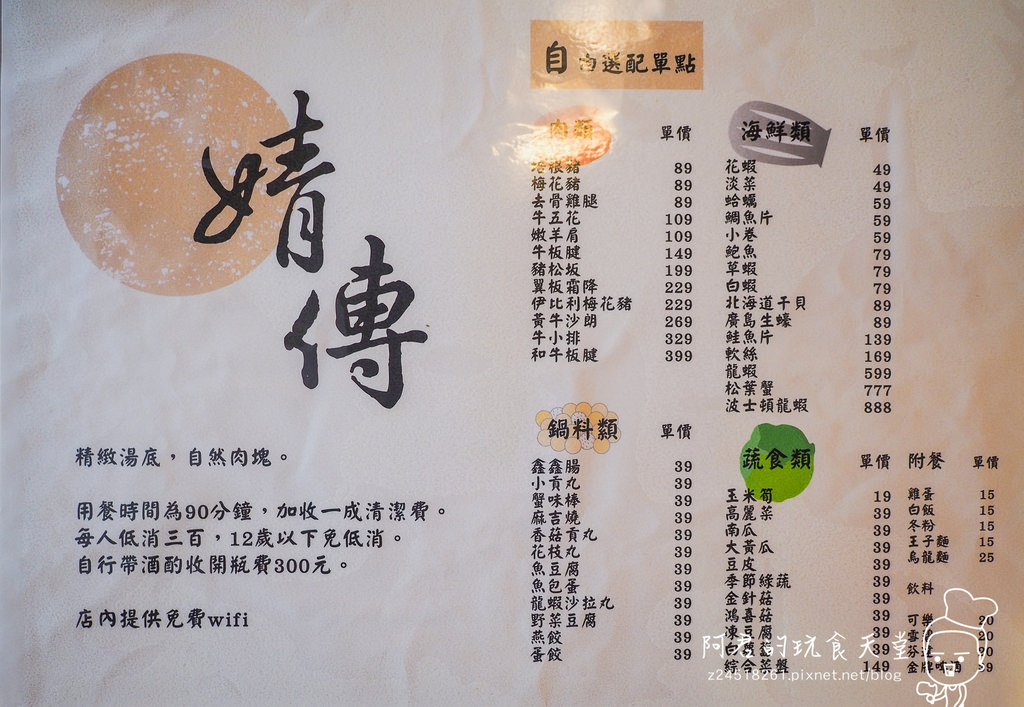 婧
傳
精緻湯底，自然肉塊。
用餐時間為90分鐘，加收一成清潔費。
每人低消三百，12歲以下免低消。
自行帶酒酌收開瓶費300元。
店內提供免費wifi
自由選配單點
肉類 單價
培根豬 89
梅花豬 89
去骨雞腿 89
牛五花 109
嫩羊肩 109
牛板腱 149
豬松坂 199
翼板霜降 229
伊比利梅花豬 229
黃牛沙朗 269
牛小排 329
和牛板腱 399
鍋料類 單價
鑫鑫腸 39
小貢丸 39
蟹味棒 39
麻吉燒 39
香菇貢丸 39
花枝丸 39
魚豆腐 39
魚包蛋 39
龍蝦沙拉丸 39
野菜豆腐 39
燕餃 39
蛋餃 39
海鮮類 單價
花蝦 49
淡菜 49
蛤蠣 59
鯛魚片 59
小卷 59
鮑魚 79
草蝦 79
白蝦 79
北海道干貝 89
廣島生蠔 89
鮭魚片 139
軟絲 169
龍蝦 599
松葉蟹 777
波士頓龍蝦 888
蔬食類 單價
玉米筍 19
高麗菜 39
南瓜 39
大黃瓜 39
豆皮 39
季節綠蔬 39
金針菇 39
鴻喜菇 39
凍豆腐 39
39
綜合菜盤 149
附餐 單價
雞蛋 15
白飯 15
冬粉 15
王子麵 15
烏龍麵 25
飲料
可樂 20
雪 20
芬達 20
金牌啤酒
阿君的玩食天堂
z24518261.pixnet.net/blog